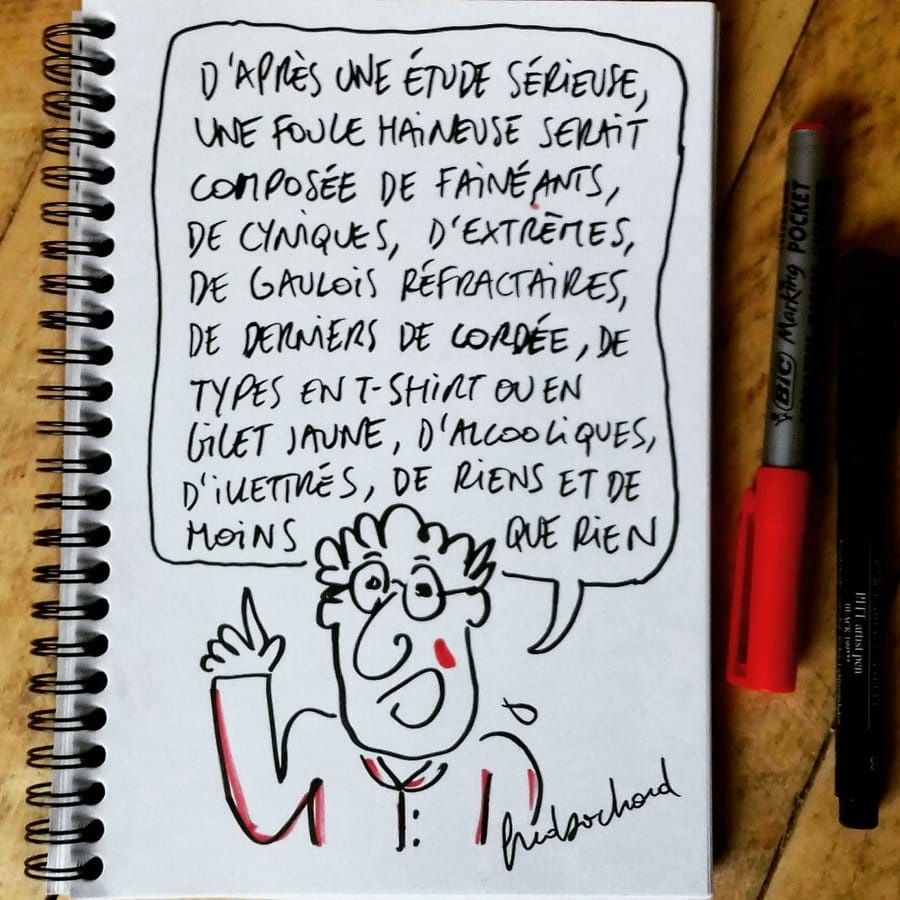 D'APRÈS UNE ÉTUDE SÉRIEUSE,
UNE FOULE HAINEUSE SERAIT
COMPOSÉE DE FAINÉANTS,
DE CYNIQUES, D'EXTRÊMES,
DE GAULOIS RÉFRACTAIRES,
DE DERNIERS DE CORDÉE, DE
TYPES EN T-SHIRT OU EN
GILET JAUNE, D'ALCOOLIQUES,
D'ILLETTRÉS, DE RIENS ET DE
MOINS QUE RIEN
BIC Marking POCKET
PITT artist pen
BLACK